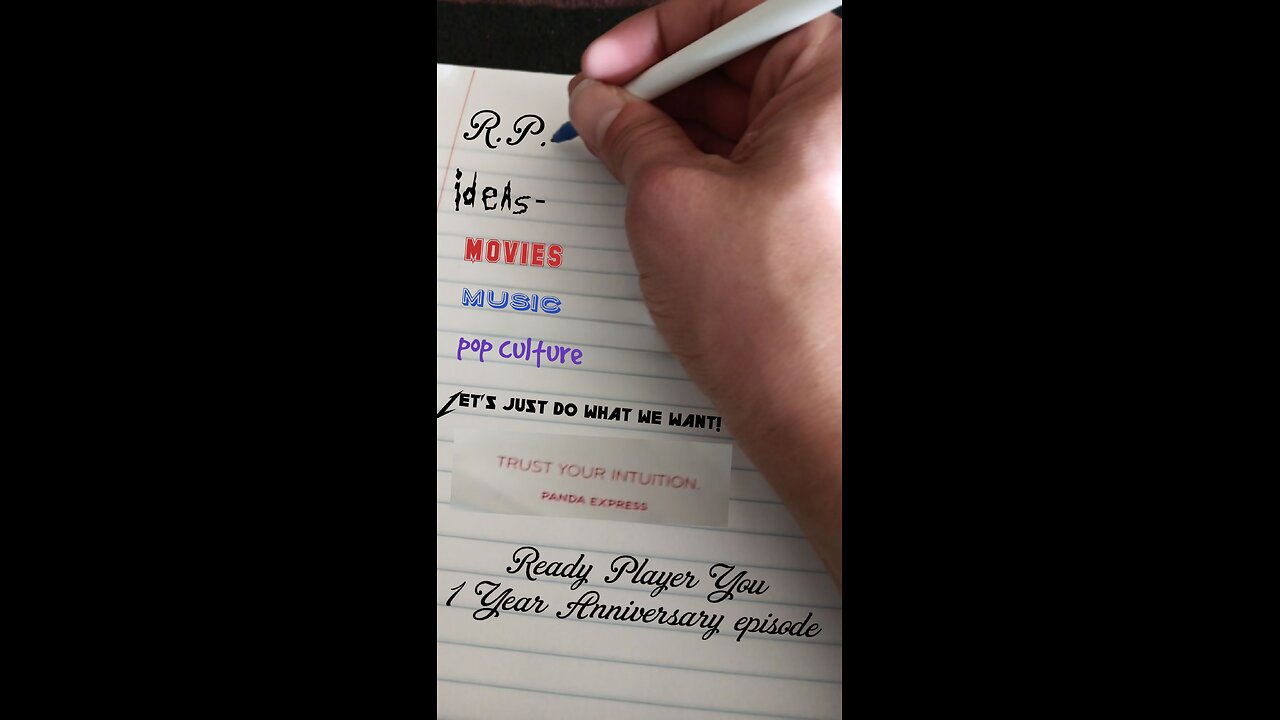 R.P.
ideas-
MOVIES
MUSIC
pop culture
LET'S JUST DO WHAT WE WANT!
TRUST YOUR INTUITION.
PANDA EXPRESS
Ready Player You
1 Year Anniversary episode